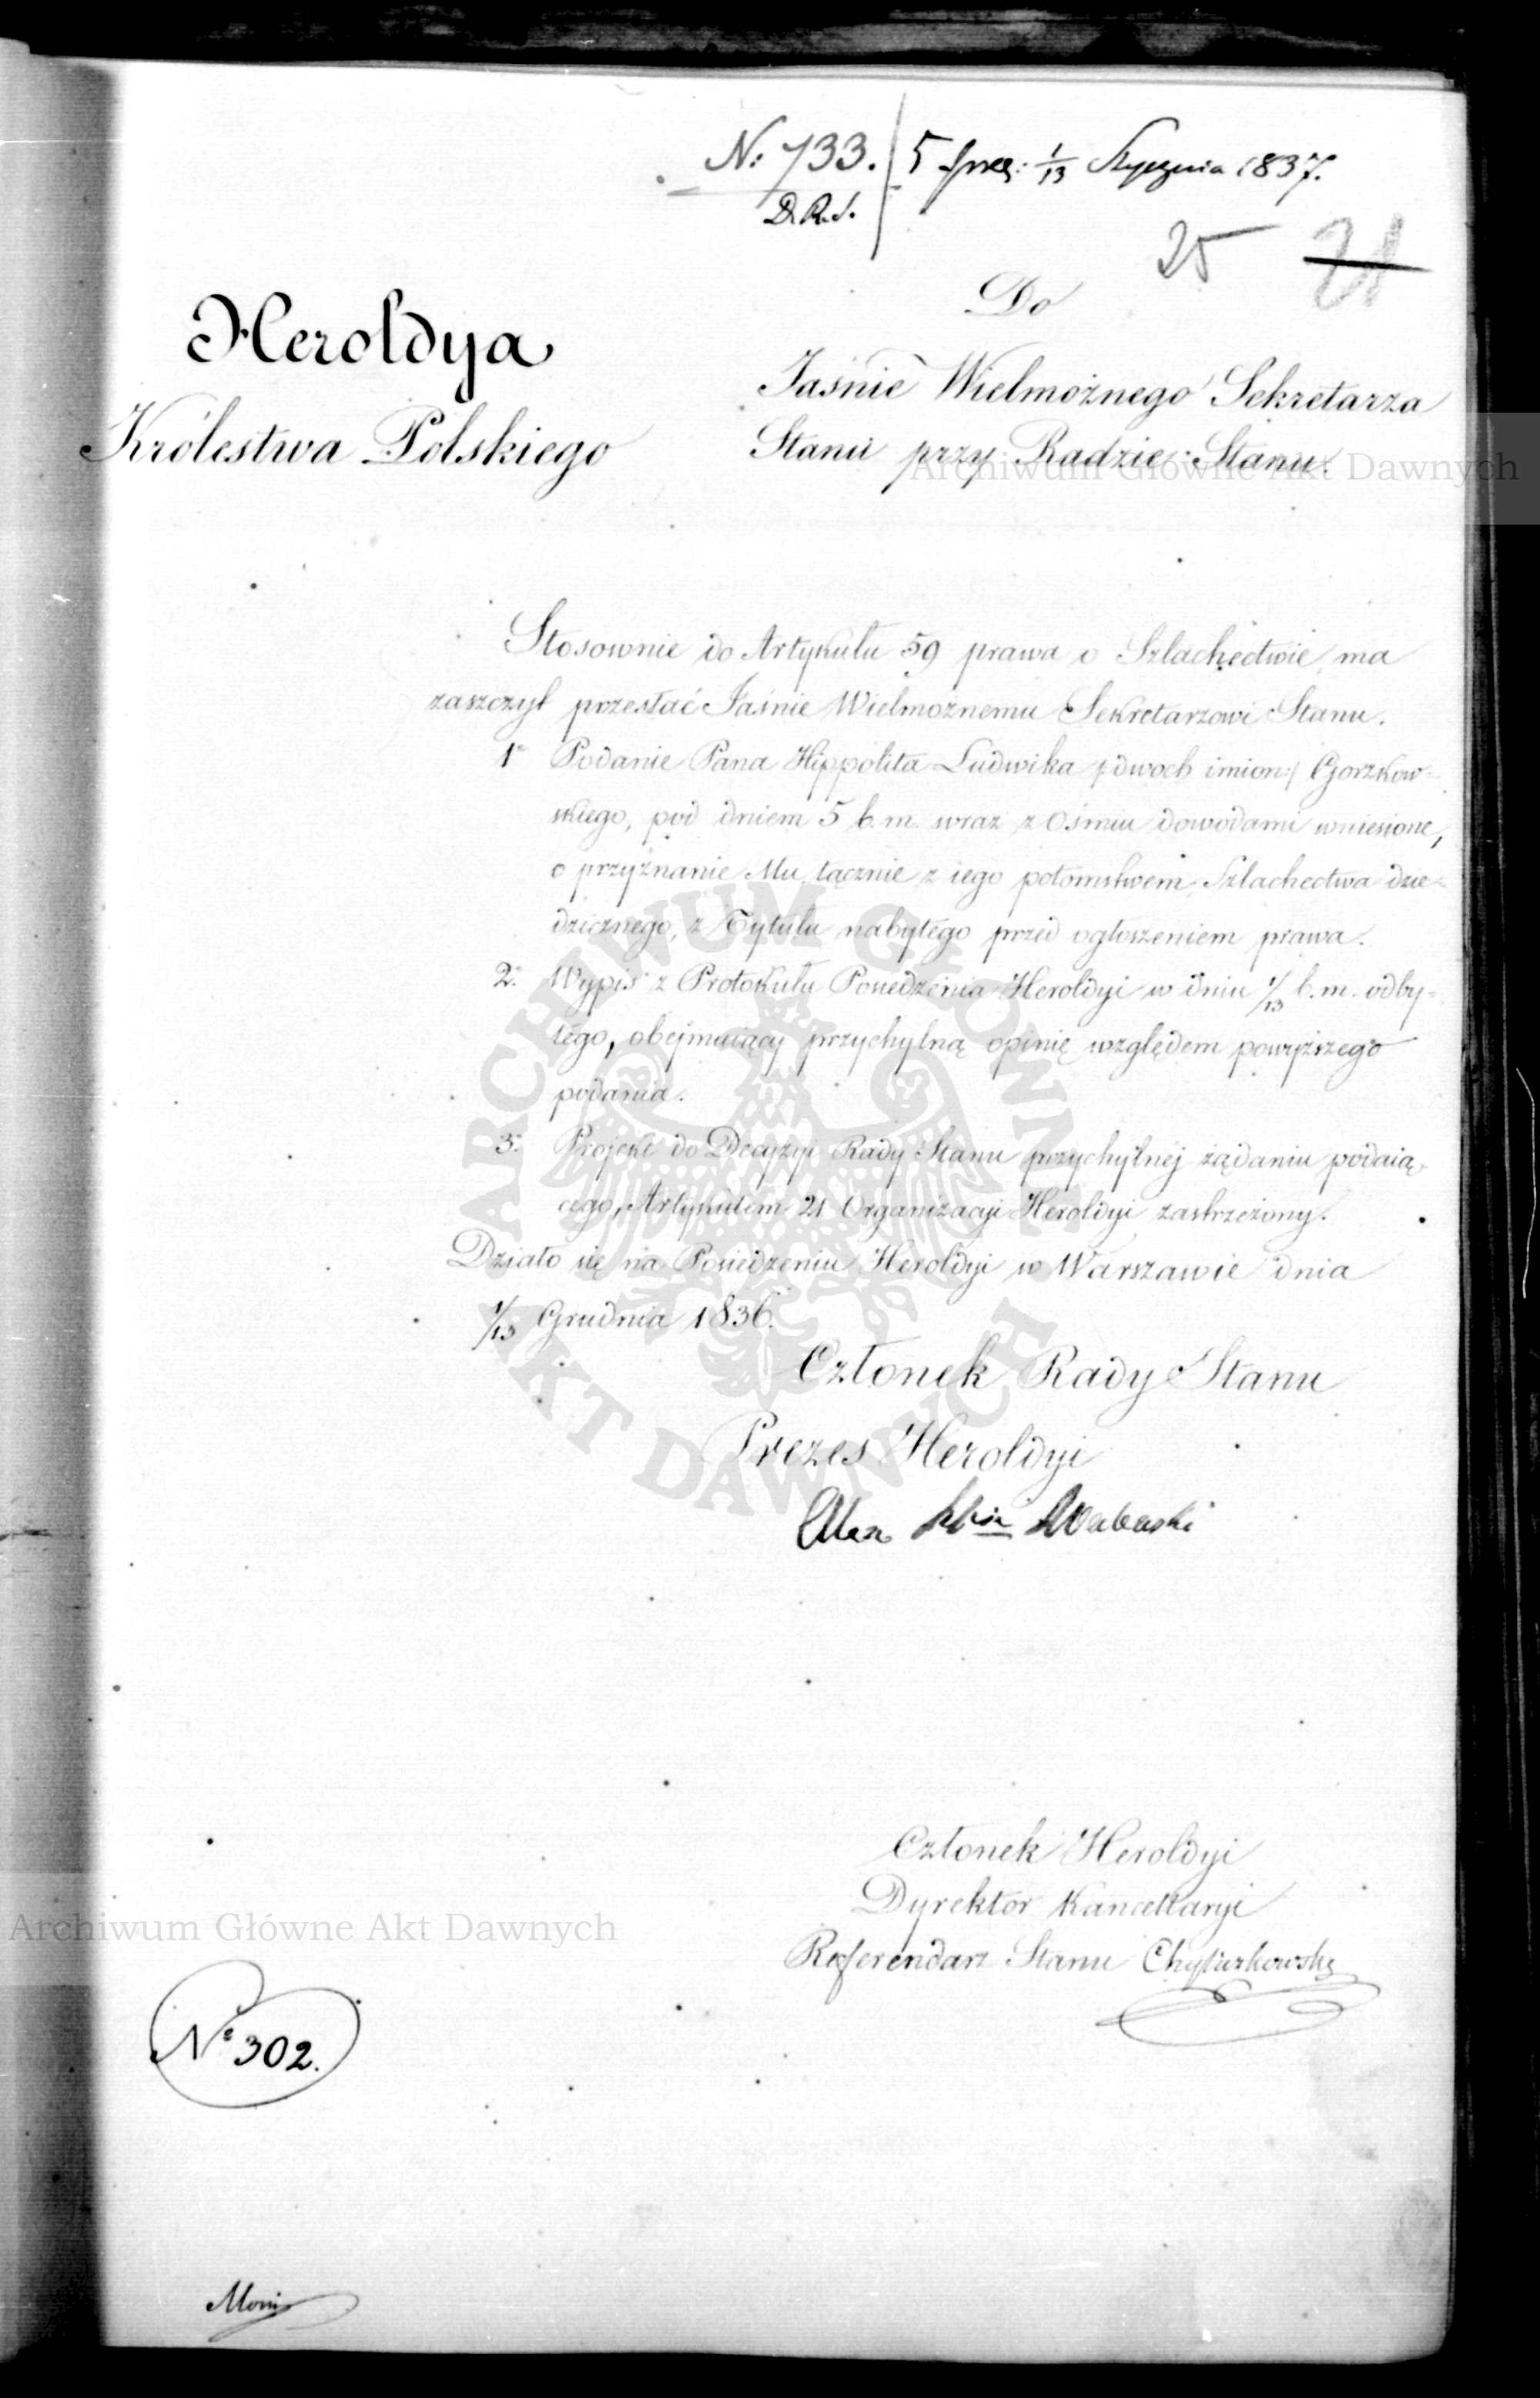 N: 733. 5 prez: 1/13 Stycznia 1837.
D.R.S.
25 21
Heroldya
Królestwa Polskiego
Do
Jaśnie Wielmożnego Sekretarza
Stanu przy Radzie Stanu.
Stosownie do Artykułu 59 prawa o Szlachectwie, ma
zaszczyt przesłać Jaśnie Wielmożnemu Sekretarzowi Stanu.
1° Podanie Pana Hippolita Ludwika /:dwoch imion:/ Gorzkow=
skiego, pod dniem 5 b.m. wraz z Ośmiu dowodami wniesione,
o przyznanie Mu, łącznie z iego potomstwem, Szlachectwa dzie=
dzicznego, z Tytułu nabytego przed ogłoszeniem prawa.
2° Wypis z Protokułu Posiedzenia Heroldyi w dniu 1/13 b.m. odby=
tego, obejmuiący przychylną opinię względem powyższego
podania.
3° Projekt do Decyzyi Rady Stanu przychylnéj żądaniu podaią=
cego, Artykułem 21 Organizacyi Heroldyi zastrzeżony.
Działo się na Posiedzeniu Heroldyi w Warszawie dnia
1/13 Grudnia 1836.
Członek Rady Stanu
Prezes Heroldyi
Alex
Członek Heroldyi
Dyrektor Kancellaryi
Referendarz Stanu
N° 302.
Archiwum Główne Akt Dawnych
Archiwum Główne Akt Dawnych
ARCHIWUM GŁÓWNE AKT DAWNYCH